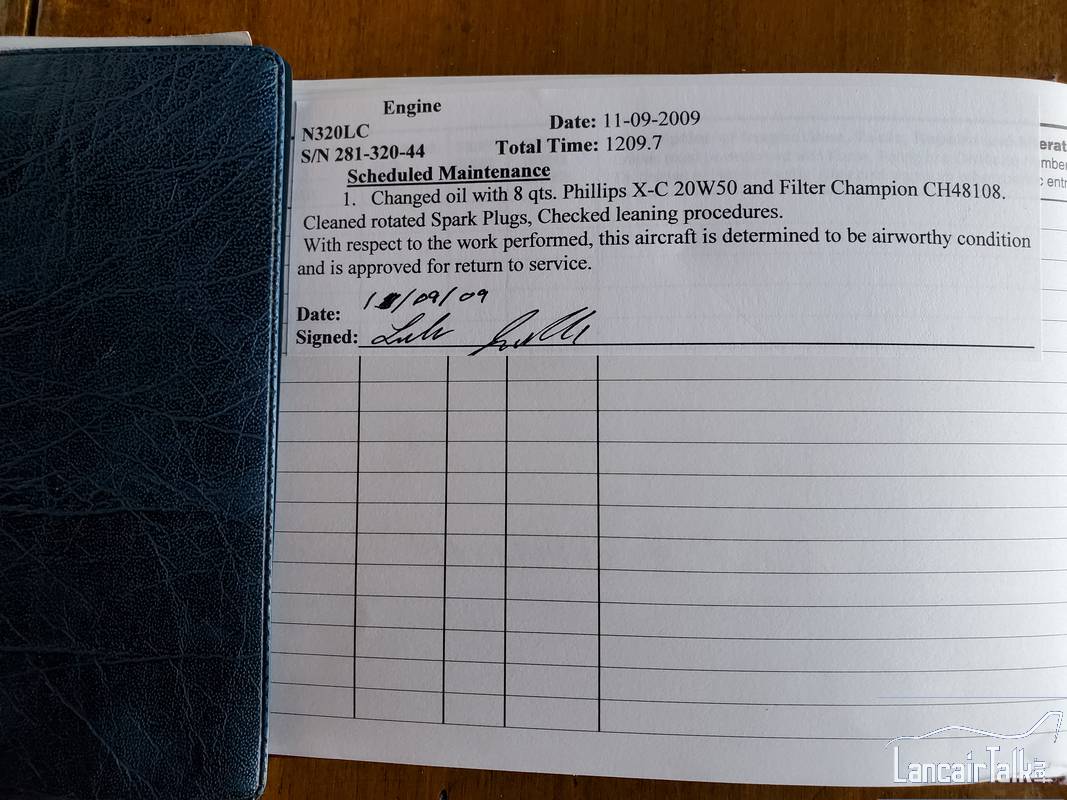 Engine
N320LC Date: 11-09-2009
S/N 281-320-44 Total Time: 1209.7
Scheduled Maintenance
1. Changed oil with 8 qts. Phillips X-C 20W50 and Filter Champion CH48108.
Cleaned rotated Spark Plugs, Checked leaning procedures.
With respect to the work performed, this aircraft is determined to be airworthy condition
and is approved for return to service.
Date: 11/09/09
Signed:
erat
mbe
entr
LancairTalk